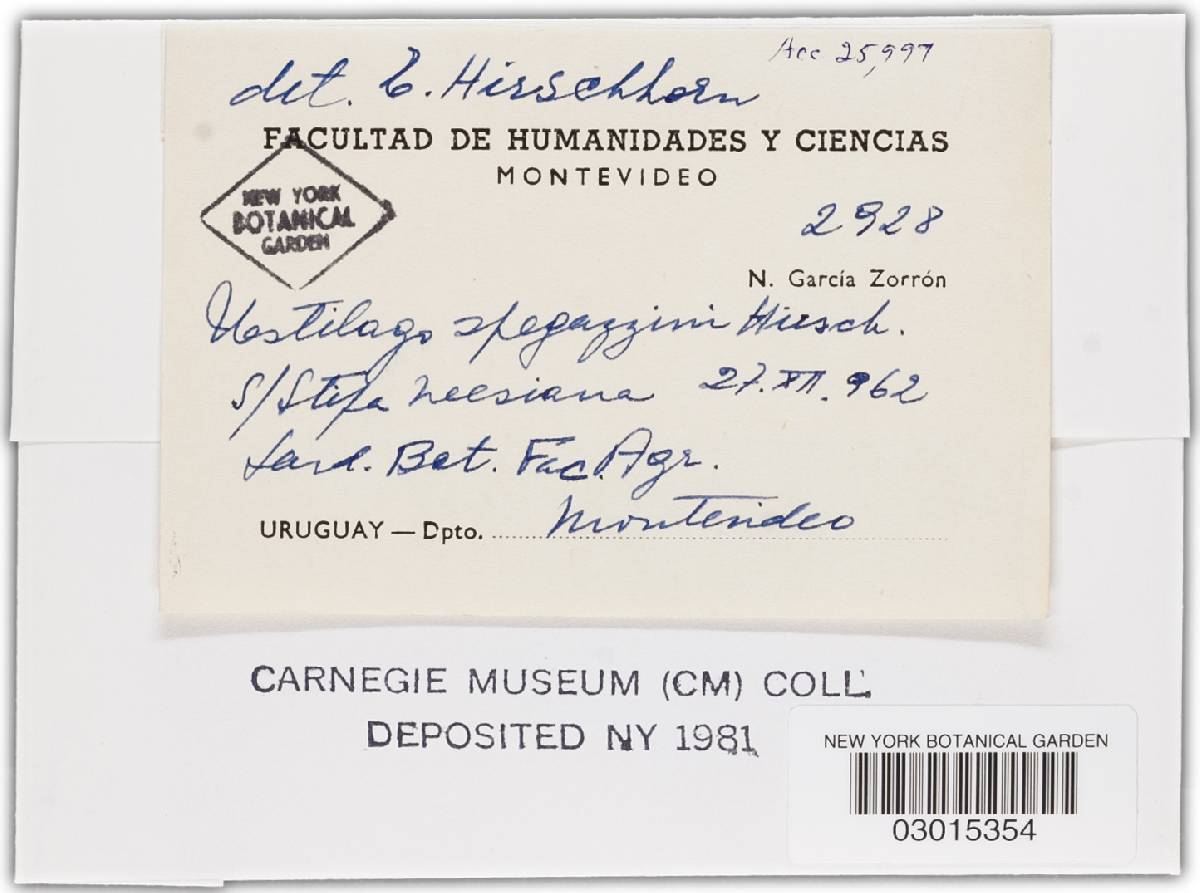 Acc 25,997
det. E. Hirschhorn
FACULTAD DE HUMANIDADES Y CIENCIAS
MONTEVIDEO
NEW YORK
BOTANICAL
GARDEN
2928
N. García Zorrón
Ustilago spegazzinii Hirsch.
S/Stipa neesiana 27.XII.962
Jard. Bot. Fac. Agr.
URUGUAY — Dpto. Montevideo
CARNEGIE MUSEUM (CM) COLL.
DEPOSITED NY 1981
NEW YORK BOTANICAL GARDEN
03015354